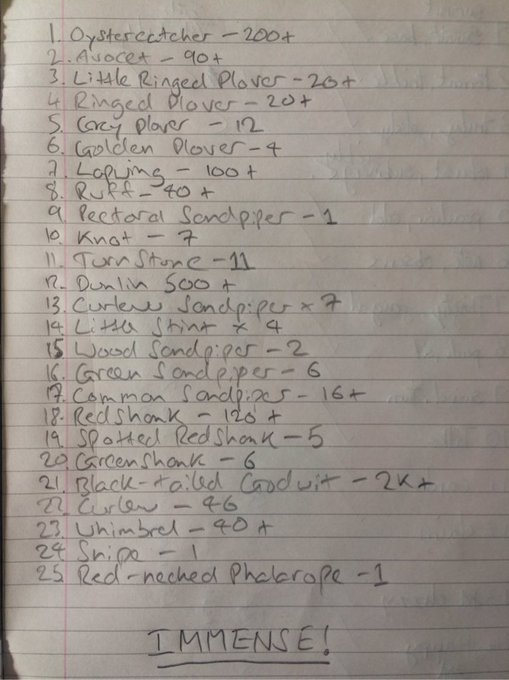 1. Oystercatcher - 200+
2. Avocet - 90+
3. Little Ringed Plover - 20+
4. Ringed Plover - 20+
5. Grey Plover - 12
6. Golden Plover - 4
7. Lapwing - 100+
8. Ruff - 40+
9. Pectoral Sandpiper - 1
10. Knot - 7
11. Turnstone - 11
12. Dunlin 500+
13. Curlew Sandpiper x 7
14. Little Stint x 4
15. Wood Sandpiper - 2
16. Green Sandpiper - 6
17. Common Sandpiper - 16+
18. Redshank - 120+
19. Spotted Redshank - 5
20. Greenshank - 6
21. Black-tailed Godwit - 2K+
22. Curlew - 46
23. Whimbrel - 40+
24. Snipe - 1
25. Red-necked Phalarope - 1
IMMENSE!